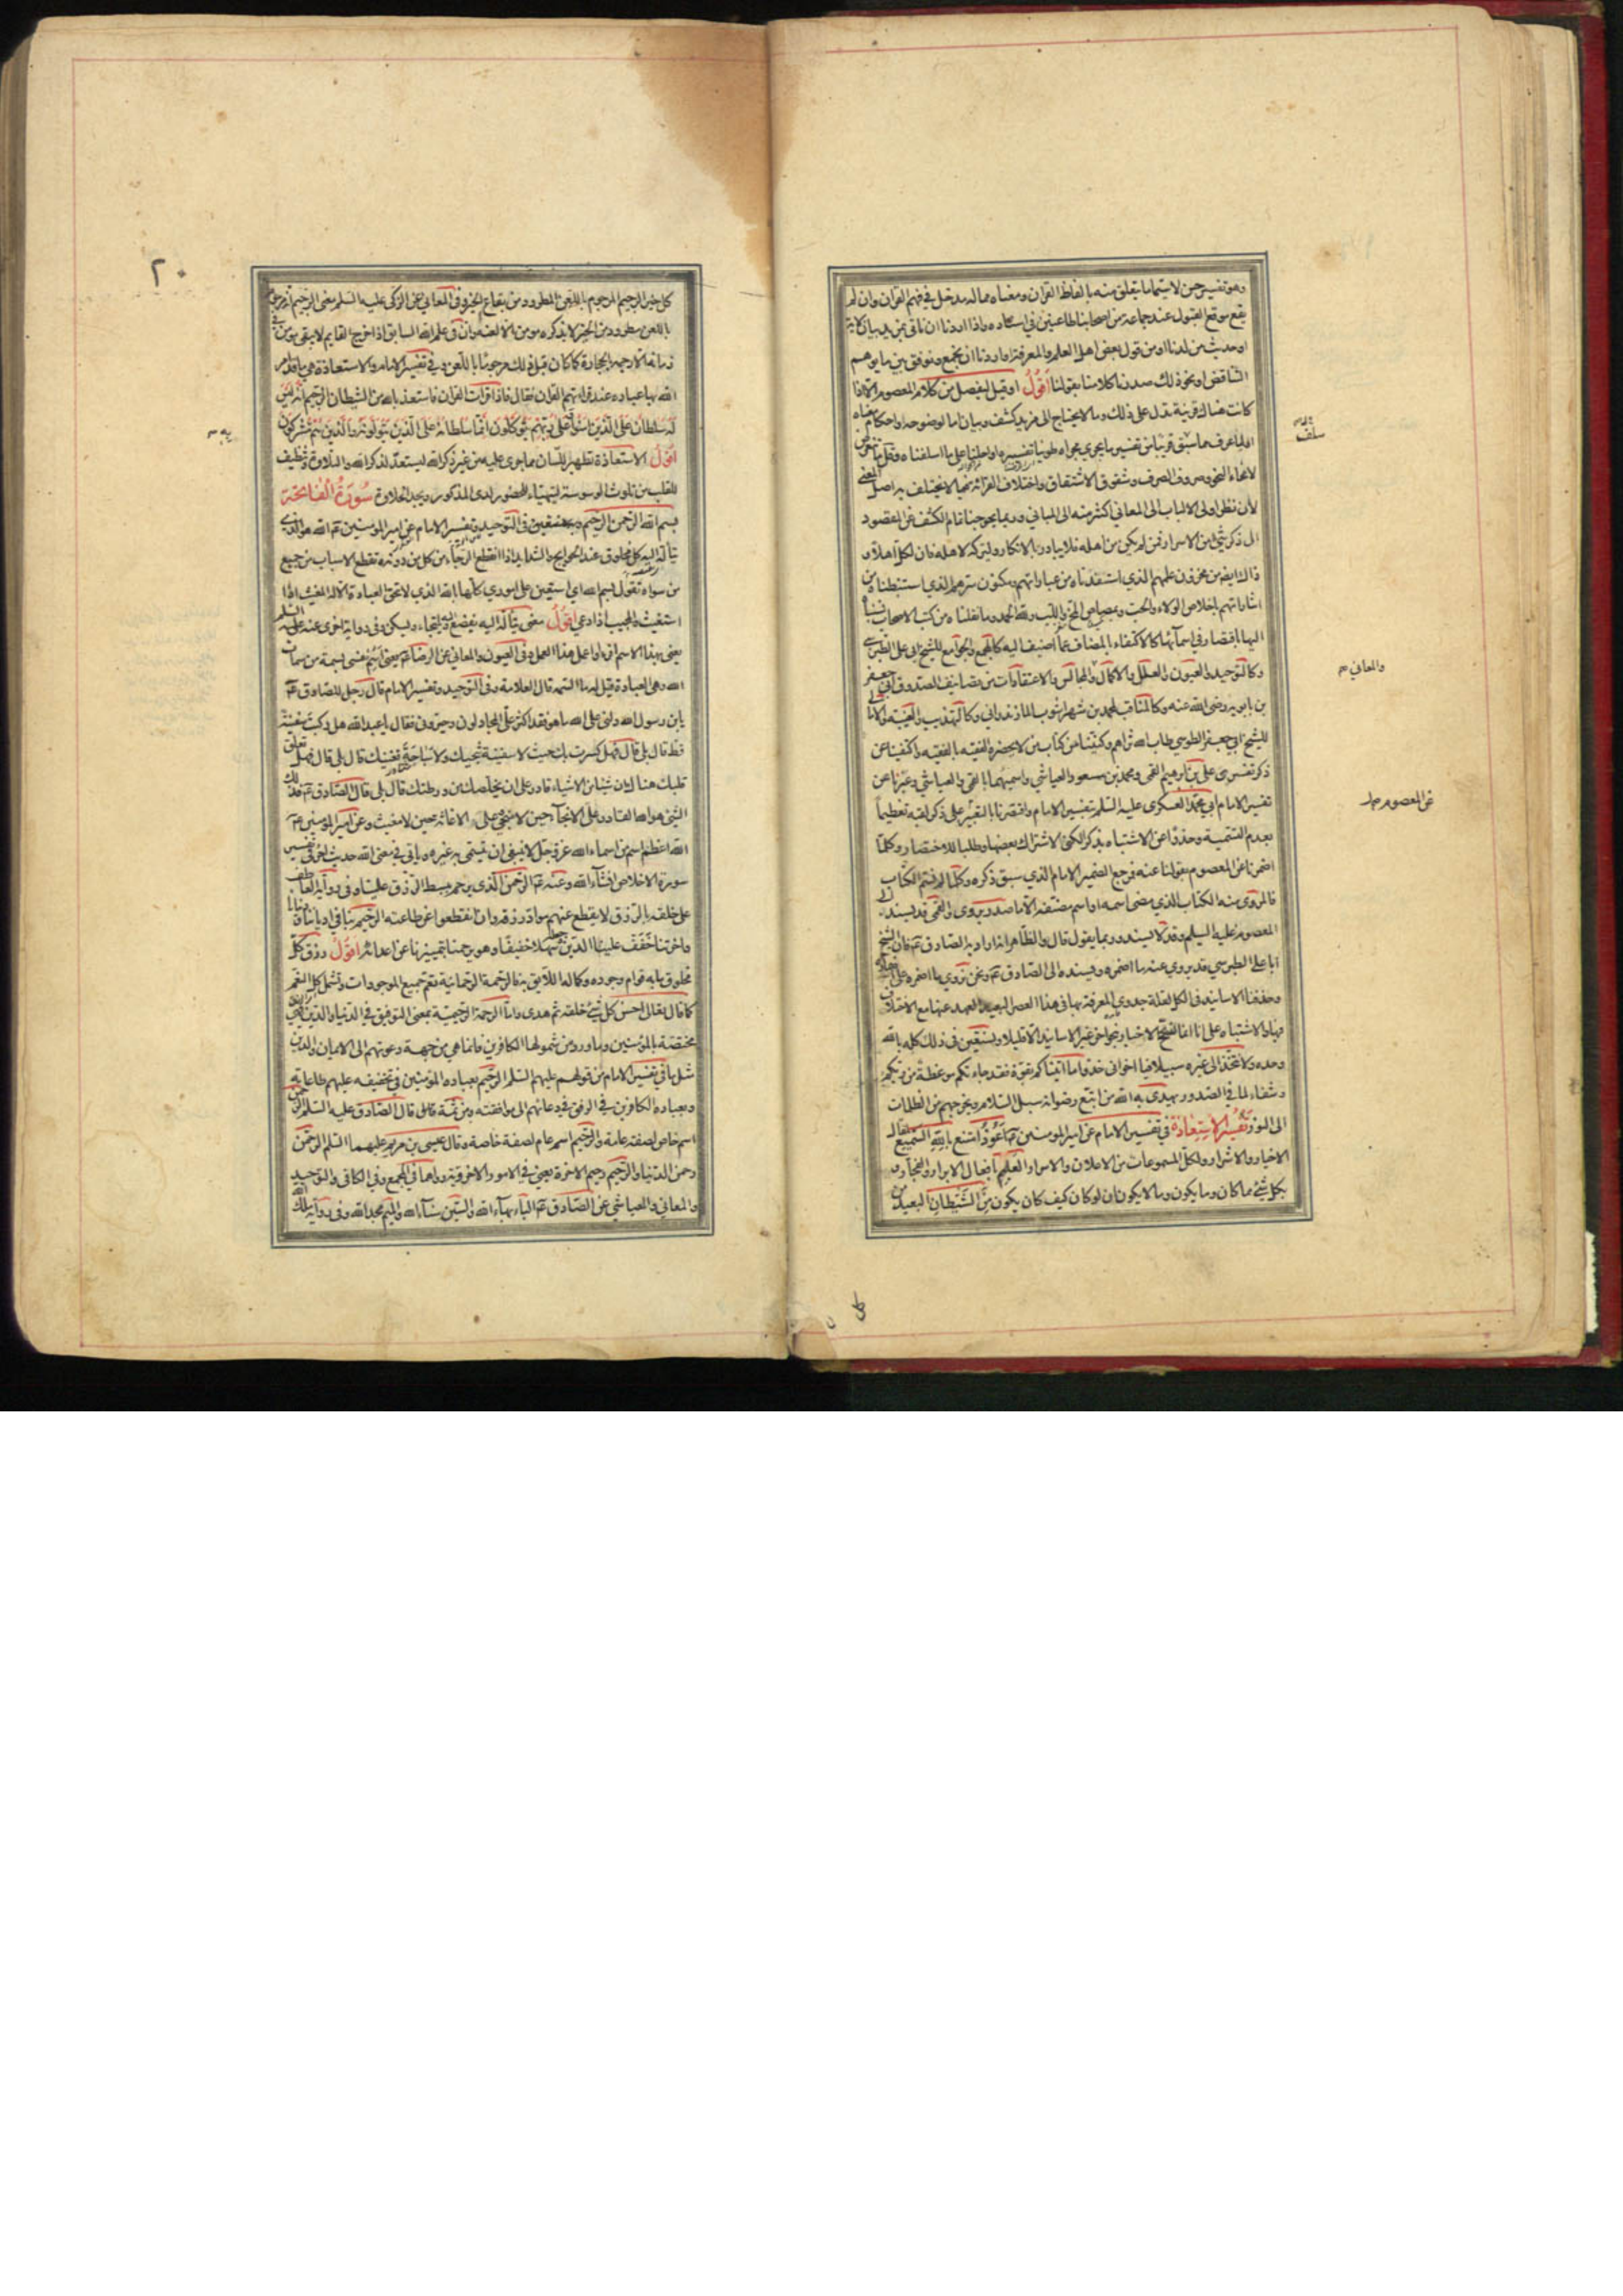 وهو تفسير حسن لا سيما ما يتعلق منه بالفاظ القران ومعناه مما له مدخل في فهم القران وان لم
يقع موقع القبول عند جماعة من اصحابنا طاعنين في اسناده واذا اردنا ان ناتي بمزيد بيان لاية
او حديث من لدنا او من قول بعض اهل العلم والمعرفة او اردنا ان نجمع ونوفق بين ما يوهم
التناقض او نحو ذلك صدرنا كلامنا بقولنا اقول او قيل ليفصل من كلام المعصوم الا اذا
كانت هناك قرينة تدل على ذلك وما لا يحتاج الى مزيد كشف وبيان اما لوضوحه واحكام معناه
او لما عرف مما سبق قريبا من تفسير ما يجري مجراه طوينا تفسيره او احلنا على ما اسلفناه وقل ما نتعرض
لانحاء النحو وصروف الصرف وشقوق الاشتقاق واختلاف القرائة فيما لا يختلف به اصل المعنى
لان نظر اولى الالباب الى المعاني اكثر منه الى المباني وربما يحوجنا تمام الكشف عن المقصود
الى ذكر شئ من الاسرار فمن لم يكن من اهله فلا يبادرن بالانكار وليتركه لاهله فان لكل اهلا و
ذلك ايضه من مخزون علمهم الذي استفدناه من عباراتهم ومكنون سرهم الذي استنبطناه من
اشاراتهم باخلاص الولاء والحب وبمصاص المخ واللب ولله الحمد وما نقلناه من كتب الاصحاب نسبناه
اليها باقتصار في اسمائها كالاكتفاء بالمضاف عما اضيف اليه كالمجمع والجوامع للشيخ ابي علي الطبرسي
وكالتوحيد والعيون والعلل والاكمال والمجالس والاعتقادات من تصانيف الصدوق ابي جعفر
بن بابويه رضى الله عنه وكالمناقب لمحمد بن شهراشوب المازندراني وكالتهذيب والغيبة والامالي
للشيخ ابي جعفر الطوسي طاب الله ثراهم وكنينا عن كتاب من لا يحضره الفقيه بالفقيه واكتفينا عن
ذكر تفسيرى علي بن ابرهيم القمي ومحمد بن مسعود العياشي واسميهما بالقمي والعياشي وعبرنا عن
تفسير الامام ابي محمد العسكرى عليه السلم بتفسير الامام واقتصرنا بالتعبير على ذكر لقبه تعظيما
بعدم التسمية وحذرا عن الاشتباه بذكر الكنى لاشتراك بعضها وطلبا للاختصار وكلما
اضمرنا عن المعصوم بقولنا عنه فمرجع الضمير الامام الذي سبق ذكره وكلما لم نسم الكتاب
فالمروى منه الكتاب الذي مضى اسمه او اسم مصنفه الا ما صدر بروى والقمي قد يسند الى
المعصوم عليه السلم وقد لا يسند وربما يقول قال والظاهر انه اراد به الصادق عم فان الشيخ
ابا علي الطبرسي قد يروي عنه ما اضمره ويسنده الى الصادق عم ونحن نروي ما اضمره على اضماره
وحذفنا الاسانيد في الكل لقلة جدوى المعرفة بها في هذا العصر البعيد العهد عنها مع الاختلاف
فيها والاشتباه على انا انما نصحح الاخبار بنحو اخر غير الاسانيد الا قليلا ونستعين في ذلك كله بالله
وحده ولا نتخذ الى غيره سبيلا فيا اخواني خذوا ما اتيناكم بقوة فقد جاءتكم موعظة من ربكم
وشفاء لما في الصدور يهدى به الله من اتبع رضوانه سبل السلام ويخرجهم من الظلمات
الى النور تفسير الاستعاذة في تفسير الامام عن امير المؤمنين عم اعوذ امتنع بالله السميع لمقال
الاخيار والاشرار ولكل المسموعات من الاعلان والاسرار العليم بافعال الابرار والفجار و
بكل شئ مما كان وما يكون وما لا يكون ان لو كان كيف كان يكون من الشيطان البعيد من
سلف
والمعاني
عن المعصوم
٢٠
كل خير الرجيم المرجوم باللعن المطرود من بقاع الخير وفي المعاني عن الزكى عليه السلم معنى الرجيم انه مرجوم
باللعن مطرود من الخير لا يذكره مؤمن الا لعنه وان في علم الله السابق اذا خرج القايم لا يبقى مؤمن في
زمانه الا رجمه بالحجارة كما كان قبل ذلك مرجوما باللعن وفي تفسير الامام والاستعاذة هي ما قد امر
الله بها عباده عند قراءتهم القران فقال فاذا قرات القران فاستعذ بالله من الشيطان الرجيم انه ليس
له سلطان على الذين امنوا وعلى ربهم يتوكلون انما سلطانه على الذين يتولونه والذين هم به مشركون
اقول الاستعاذة تطهير اللسان مما جرى عليه من غير ذكر الله ليستعد لذكر الله والتلاوة وتنظيف
للقلب من تلوث الوسوسة ليتهياء للحضور لدى المذكور ويجد الحلاوة سورة الفاتحة
بسم الله الرحمن الرحيم وبه نستعين في التوحيد وتفسير الامام عن امير المؤمنين عم الله هو الذي
يتأله اليه كل مخلوق عند الحوايج والشدايد اذا انقطع الرجاء من كل من دونه وتقطع الاسباب من جميع
من سواه تقول بسم الله اي استعين على اموري كلها بالله الذي لا تحق العبادة الا له المغيث اذا
استغيث والمجيب اذا دعي اقول معنى يتأله اليه يفزع اليه ويلتجاء ويسكن وفي رواية اخرى عنه عليه السلم
يعني بهذا الاسم اقرا واعمل هذا العمل وفى العيون والمعاني عن الرضا عم يعني اسم نفسى بسمة من سمات
الله وهي العبادة قيل له ما السمة قال العلامة وفى التوحيد وتفسير الامام قال رجل للصادق عم
يابن رسول الله دلنى على الله ما هو فقد اكثر علي المجادلون وحيروني فقال يا عبد الله هل ركبت سفينة
قط قال بلى قال فهل كسرت بك حيث لا سفينة تنجيك ولا سباحة تغنيك قال بلى قال فهل تعلق
قلبك هنالك ان شيئا من الاشياء قادر على ان يخلصك من ورطتك قال بلى قال الصادق عم فذلك
الشئ هو الله القادر على الانجاء حين لا منجي وعلى الاغاثة حين لا مغيث وعن امير المؤمنين عم
الله اعظم اسم من اسماء الله عز وجل لا ينبغي ان يتسمى به غيره وياتي في معنى الله حديث اخر في تفسير
سورة الاخلاص انشاء الله وعنه عم الرحمن الذي يرحم ببسط الرزق علينا وفي رواية العاطف
على خلقه بالرزق لا يقطع عنهم مواد رزقه وان انقطعوا عن طاعته الرحيم بنا في ادياننا ودنيانا
واخرتنا خفف علينا الدين وجعله سهلا خفيفا وهو يرحمنا بتمييزنا عن اعدائه اقول رزق كل
مخلوق ما به قوام وجوده وكماله اللايق به فالرحمة الرحمانية تعم جميع الموجودات وتشمل كل النعم
كما قال تعالى احسن كل شئ خلقه ثم هدى واما الرحمة الرحيمية بمعنى التوفيق في الدنيا والدين فهي
مختصة بالمؤمنين وما ورد من شمولها الكافرين فانما هي من جهة دعوتهم الى الايمان والدين
مثل ما في تفسير الامام من قولهم عليهم السلم الرحيم بعباده المؤمنين في تخفيفه عليهم طاعاته
وبعباده الكافرين في الرفق في دعائهم الى موافقته ومن ثمة قال الصادق عليه السلم الرحمن
اسم خاص لصفة عامة والرحيم اسم عام لصفة خاصة وقال عيسى بن مريم عليهما السلم الرحمن
رحمن الدنيا والرحيم رحيم الاخرة يعني في الامور الاخروية رواهما في المجمع وفي الكافي والتوحيد
والمعاني والعياشي عن الصادق عم الباء بهاء الله والسين سناء الله والميم مجد الله وفي رواية ملك الله